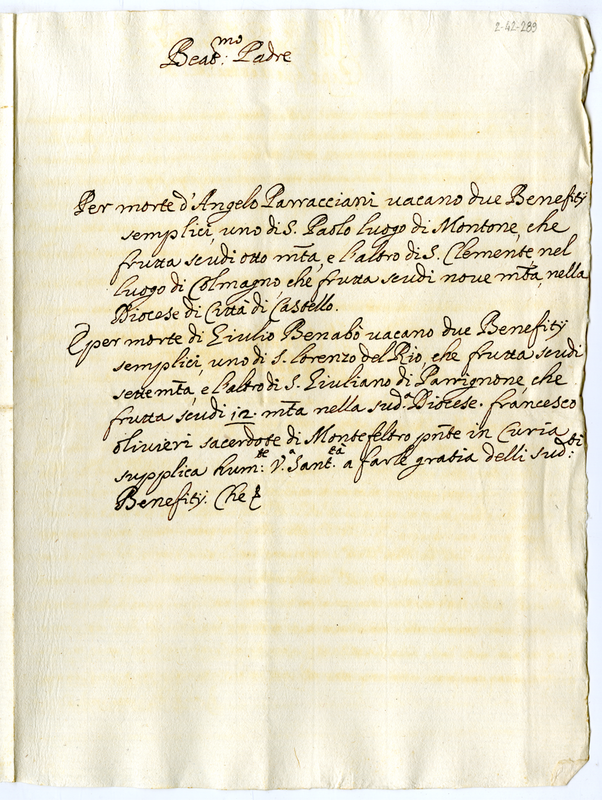 2-42-289
Beat.mo Padre
Per morte d'Angelo Parracciani vacano due Benefity
semplici, uno di S. Paolo luogo di Montone, che
frutta scudi otto mta, e l'altro di S. Clemente, nel
luogo di Colmagno, che frutta scudi nove mta, nella
Diocese di Città di Castello.
E per morte di Giulio Benabò vacano due Benefity
semplici, uno di S. Lorenzo del Rio, che frutta scudi
sette mta, e l'altro di S. Giuliano di Parrignone, che
frutta scudi 12. mta nella sud.a Diocese. francesco
olivieri sacerdote di Montefeltro pnte in Curia
supplica hum:te V.a Sant.tà a farle gratia delli sud:ti
Benefity. Che